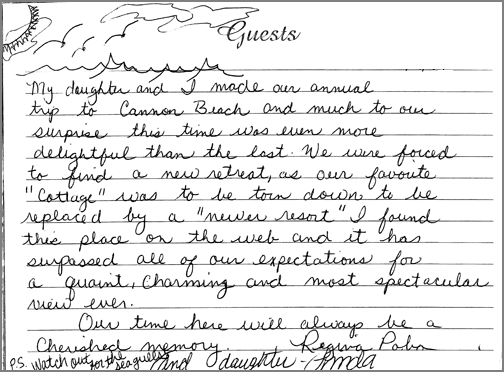 Guests
My daughter and I made our annual
trip to Cannon Beach and much to our
surprise this time was even more
delightful than the last. We were forced
to find a new retreat, as our favorite
"Cottage" was to be torn down to be
replaced by a "newer resort" I found
this place on the web and it has
surpassed all of our expectations for
a quaint, charming and most spectacular
view ever.
Our time here will always be a
Cherished memory. Regina
P.S. Watch out for the seagulls! and daughter -